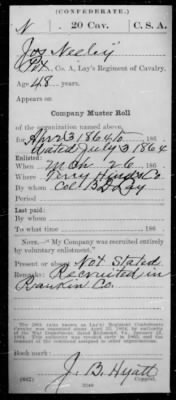 (CONFEDERATE.)
N 20 Cav. C. S. A.
Jas Neeley
Pvt, Co. A, Lay's Regiment of Cavalry.
Age 48 years.
Appears on
Company Muster Roll
of the organization named above,
for Apr 23 1864 to 186
dated July 3, 1864
Enlisted:
When Mch 26, 186
Where Perry
By whom Col B D Lay
Period
Last paid:
By whom
To what time 186
NOTE.—"My Company was recruited entirely
by voluntary enlistment."
Present or absent Not Stated
Remarks: Recruited in
Rankin Co.
Book mark:
J. B. Hyatt
(642) Copyist.